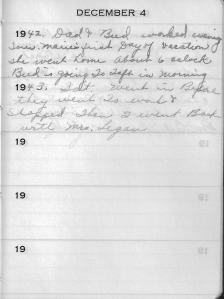 DECEMBER 4
1942. Dad & Bud worked evening
Marie's first Day of Vacation
she went home about 6 oclock
Bud is going to Taft in Morning
1943. went in Before
they went to work &
Stopped then I went Back
with Mrs.
19
19
19